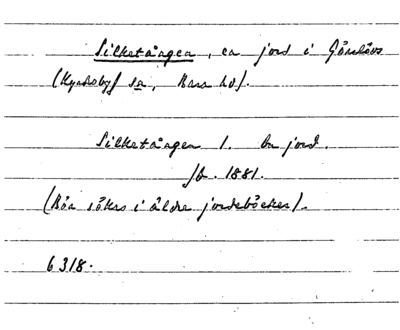 Silketången, en jord i Görslövs
(Kyrkoby) sn, Bara hd).
Silketången 1. En jord.
Jb. 1881.
(Bör sökas i äldre jordeböcker).
6318.